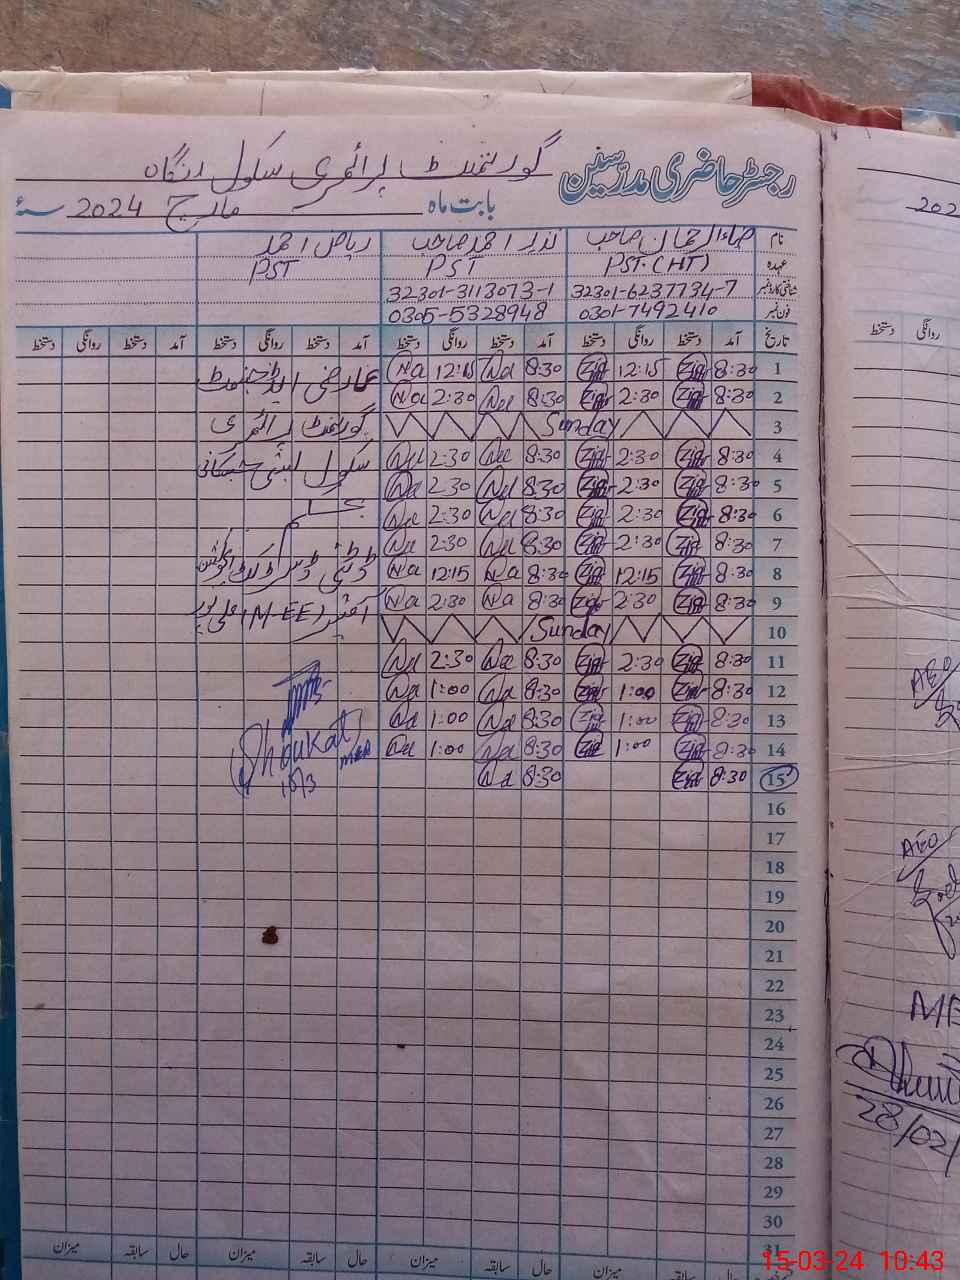 رجسٹر حاضری مدرسین گورنمنٹ پرائمری سکول رنگاہ
بابت ماہ مارچ 2024 سنہ
نام ضیاء الرحمان صاحب نذیر احمد صاحب ریاض احمد
عہدہ PST.(HT) PST PST
شناختی کارڈ نمبر 32301-6237734-7 32301-3113073-1
فون نمبر 0301-7492410 0305-5328948
تاریخ آمد دستخط روانگی دستخط آمد دستخط روانگی دستخط آمد دستخط روانگی دستخط آمد دستخط روانگی دستخط
1 8:30 Zia 12:15 Zia 8:30 Na 12:15 Na عارضی ایڈجسٹمنٹ
2 8:30 Zia 2:30 Zia 8:30 Na 2:30 Na
3 Sunday گورنمنٹ پرائمری
4 8:30 Zia 2:30 Zia 8:30 Na 2:30 Na سکول بستی جسکانی
5 8:30 Zia 2:30 Zia 8:30 Na 2:30 Na
6 8:30 Zia 2:30 Zia 8:30 Na 2:30 Na بحکم
7 8:30 Zia 2:30 Zia 8:30 Na 2:30 Na
8 8:30 Zia 12:15 Zia 8:30 Na 12:15 Na ڈپٹی ڈسٹرکٹ ایجوکیشن
9 8:30 Zia 2:30 Zia 8:30 Na 2:30 Na آفیسر (M-EE) علی پور
10 Sunday
11 8:30 Zia 2:30 Zia 8:30 Na 2:30 Na
12 8:30 Zia 1:00 Zia 8:30 Na 1:00 Na
13 8:30 Zia 1:00 Zia 8:30 Na 1:00 Na
14 8:30 Zia 1:00 Zia 8:30 Na 1:00 Na Shoukat MEA
15 8:30 Zia 8:30 Na 15/3
16
17
18
19
20
21
22
23
24
25
26
27
28
29
30
31
حال سابقہ میزان حال سابقہ میزان حال سابقہ میزان
202
روانگی دستخط
AEO
AEO
28/02/
15-03-24 10:43